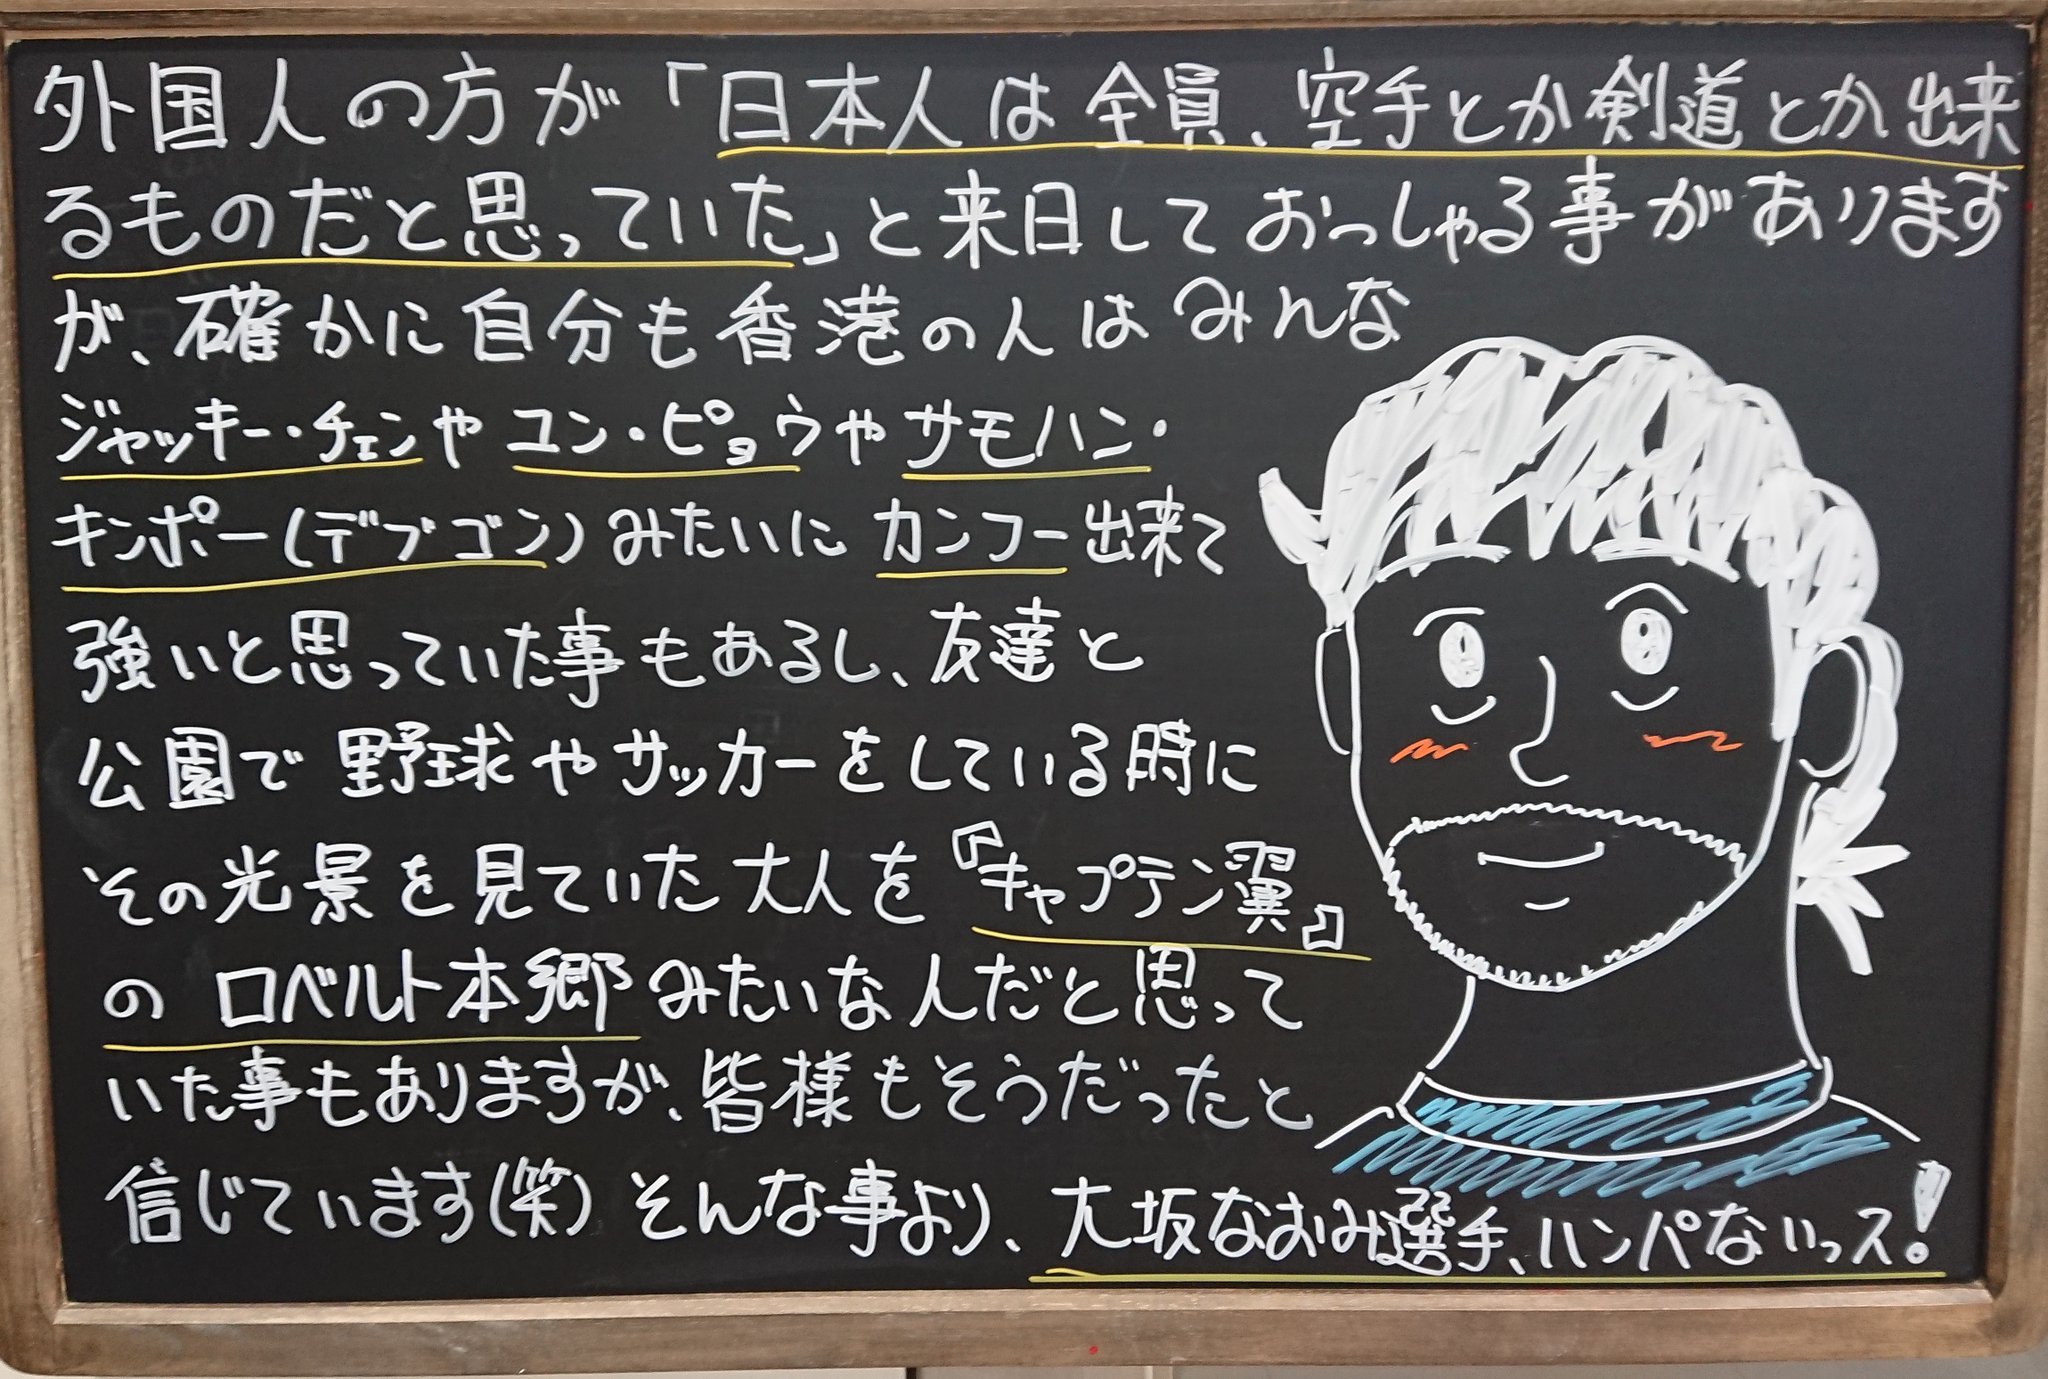 外国人の方が「日本人は全員、空手とか剣道とか出来
るものだと思っていた」と来日しておっしゃる事があります
が、確かに自分も香港の人はみんな
ジャッキー・チェンやユン・ピョウやサモハン・
キンポー(デブゴン)みたいにカンフー出来て
強いと思っていた事もあるし、友達と
公園で野球やサッカーをしている時に
その光景を見ていた大人を『キャプテン翼』
のロベルト本郷みたいな人だと思って
いた事もありますが、皆様もそうだったと
信じています(笑)そんな事より、大坂なおみ選手、ハンパないっス!